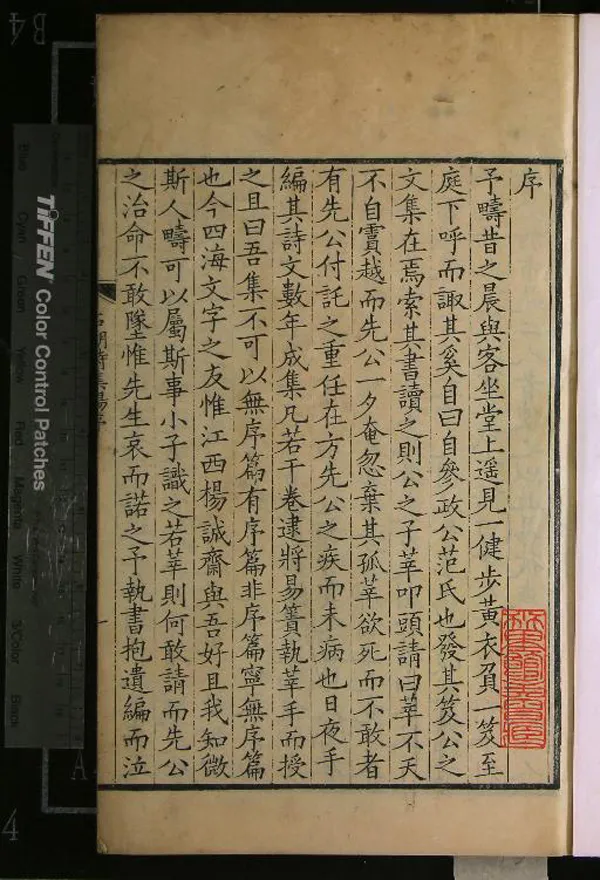 序
予疇昔之晨與客坐堂上遥見一健步黃衣負一笈至
庭下呼而諏其奚自曰自參政公范氏也發其笈公之
文集在焉索其書讀之則公之子莘叩頭請曰莘不天
不自霣越而先公一夕奄忽棄其孤莘欲死而不敢者
有先公付託之重任在方先公之疾而未病也日夜手
編其詩文數年成集凡若干卷逮將易簀執莘手而授
之且曰吾集不可以無序篇有序篇非序篇寧無序篇
也今四海文字之友惟江西楊誠齋與吾好且我知微
斯人疇可以屬斯事小子識之若莘則何敢請而先公
之治命不敢墜惟先生哀而諾之予執書抱遺編而泣
石湖詩集楊序
一
TIFFEN Color Control Patches
Blue
Cyan
Green
Yellow
Red
Magenta
White
3/Color
Black
B4
4
A